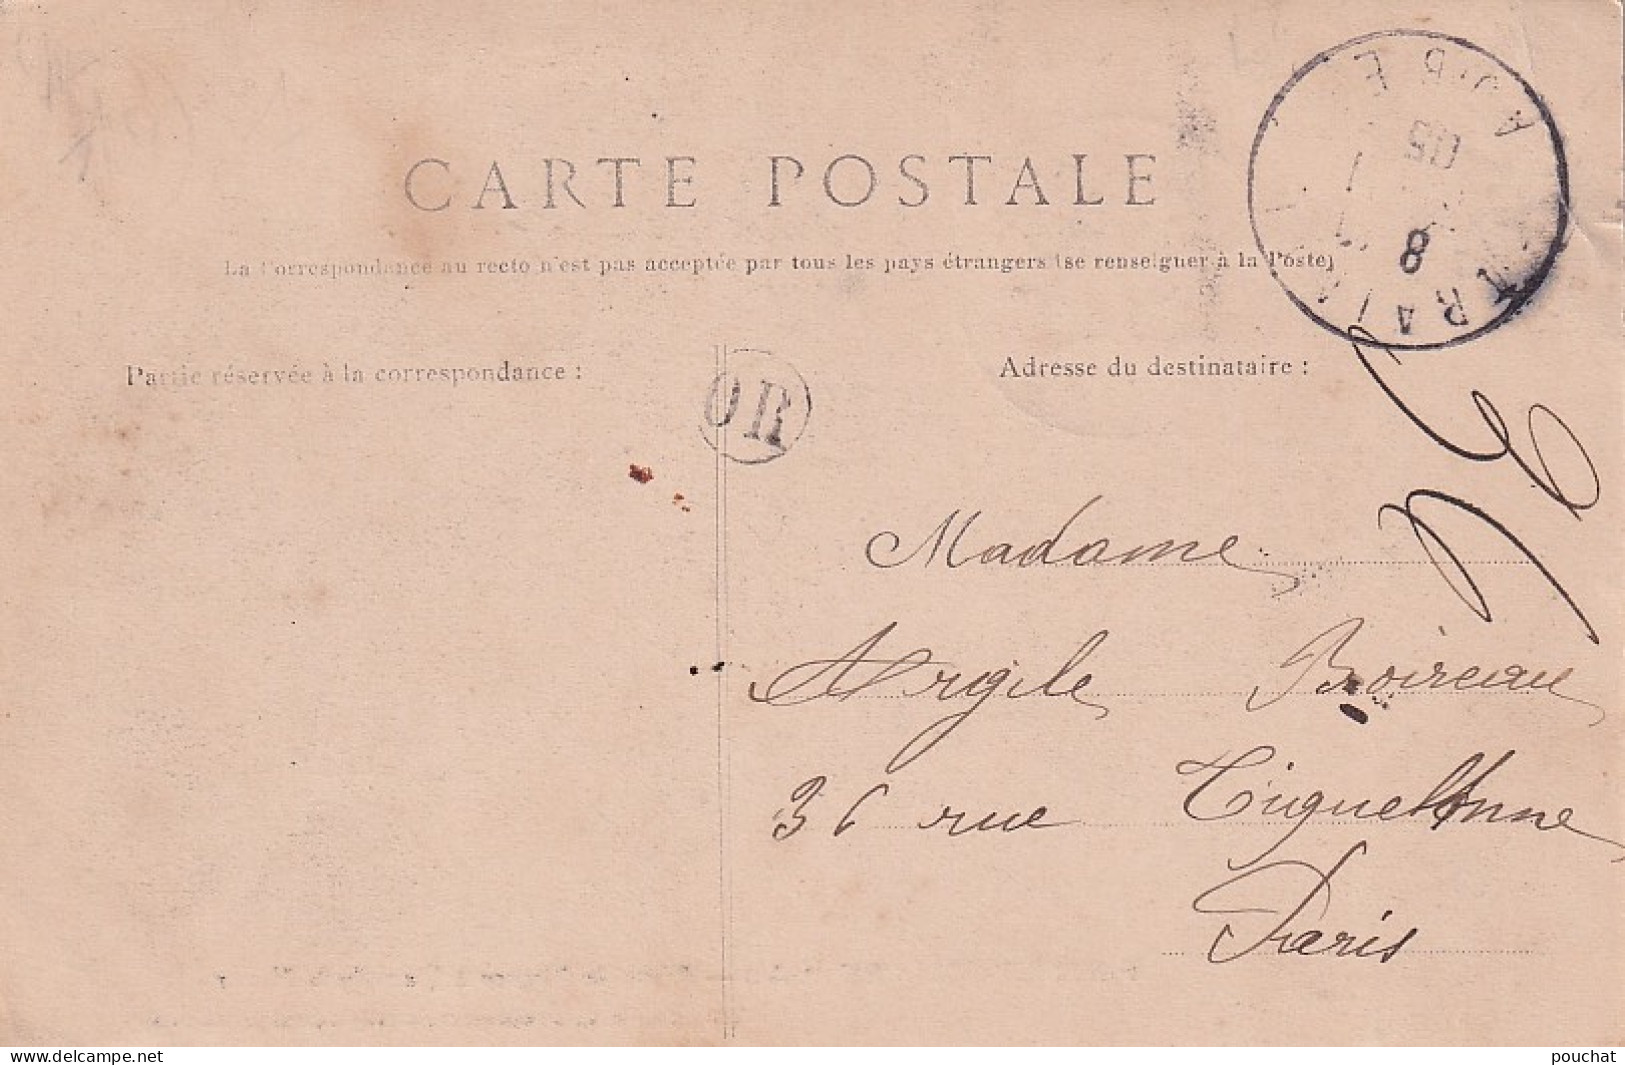 CARTE POSTALE
La Correspondance au recto n'est pas acceptée par tous les pays étrangers (se renseigner à la Poste)
Partie réservée à la correspondance :
Adresse du destinataire :
OR
AUBE
05
8
TRAIN
Madame
Argile Boireau
36 rue Tiquettonne
Paris
www.delcampe.net
pouchat